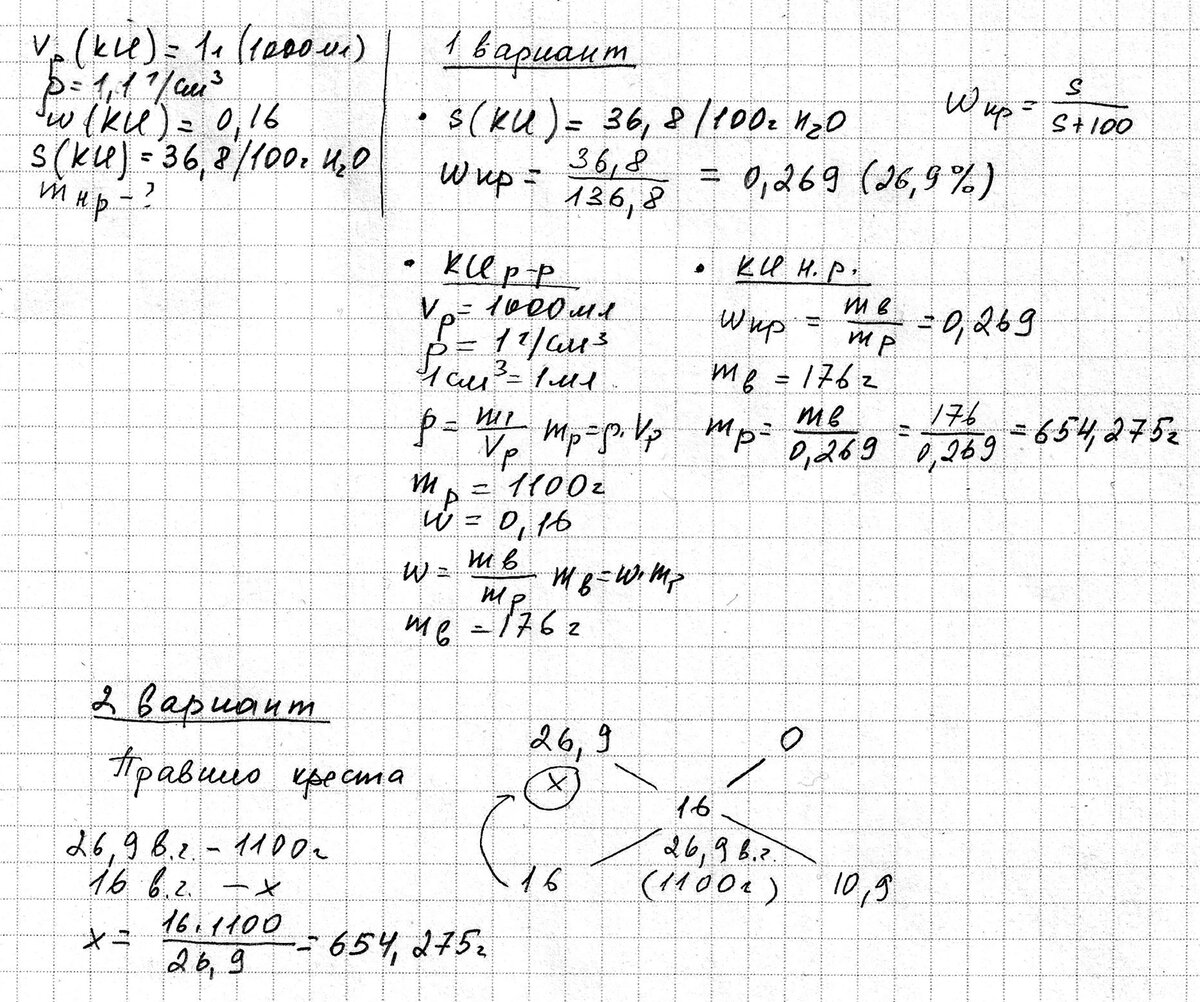 Vр (KCl) = 1л (1000 мл)
ρ = 1,1 г/см³
w (KCl) = 0,16
S (KCl) = 36,8/100г H₂O
m нр - ?
1 вариант
• S (KCl) = 36,8/100г H₂O
w нр = S / (S+100)
w нр = 36,8 / 136,8 = 0,269 (26,9%)
• KCl р-р
Vр = 1000 мл
ρ = 1 г/см³
1 см³ = 1 мл
ρ = mр / Vр mр = ρ·Vр
mр = 1100 г
w = 0,16
w = mв / mр mв = w·mр
mв = 176 г
• KCl н.р.
w нр = mв / mр = 0,269
mв = 176 г
mр = mв / 0,269 = 176 / 0,269 = 654,275 г
2 вариант
Правило креста
26,9 в.г. - 1100 г
16 в.г. - x
x = 16·1100 / 26,9 = 654,275 г
26,9 0
x
16
26,9 в.г.
16 (1100 г) 10,9